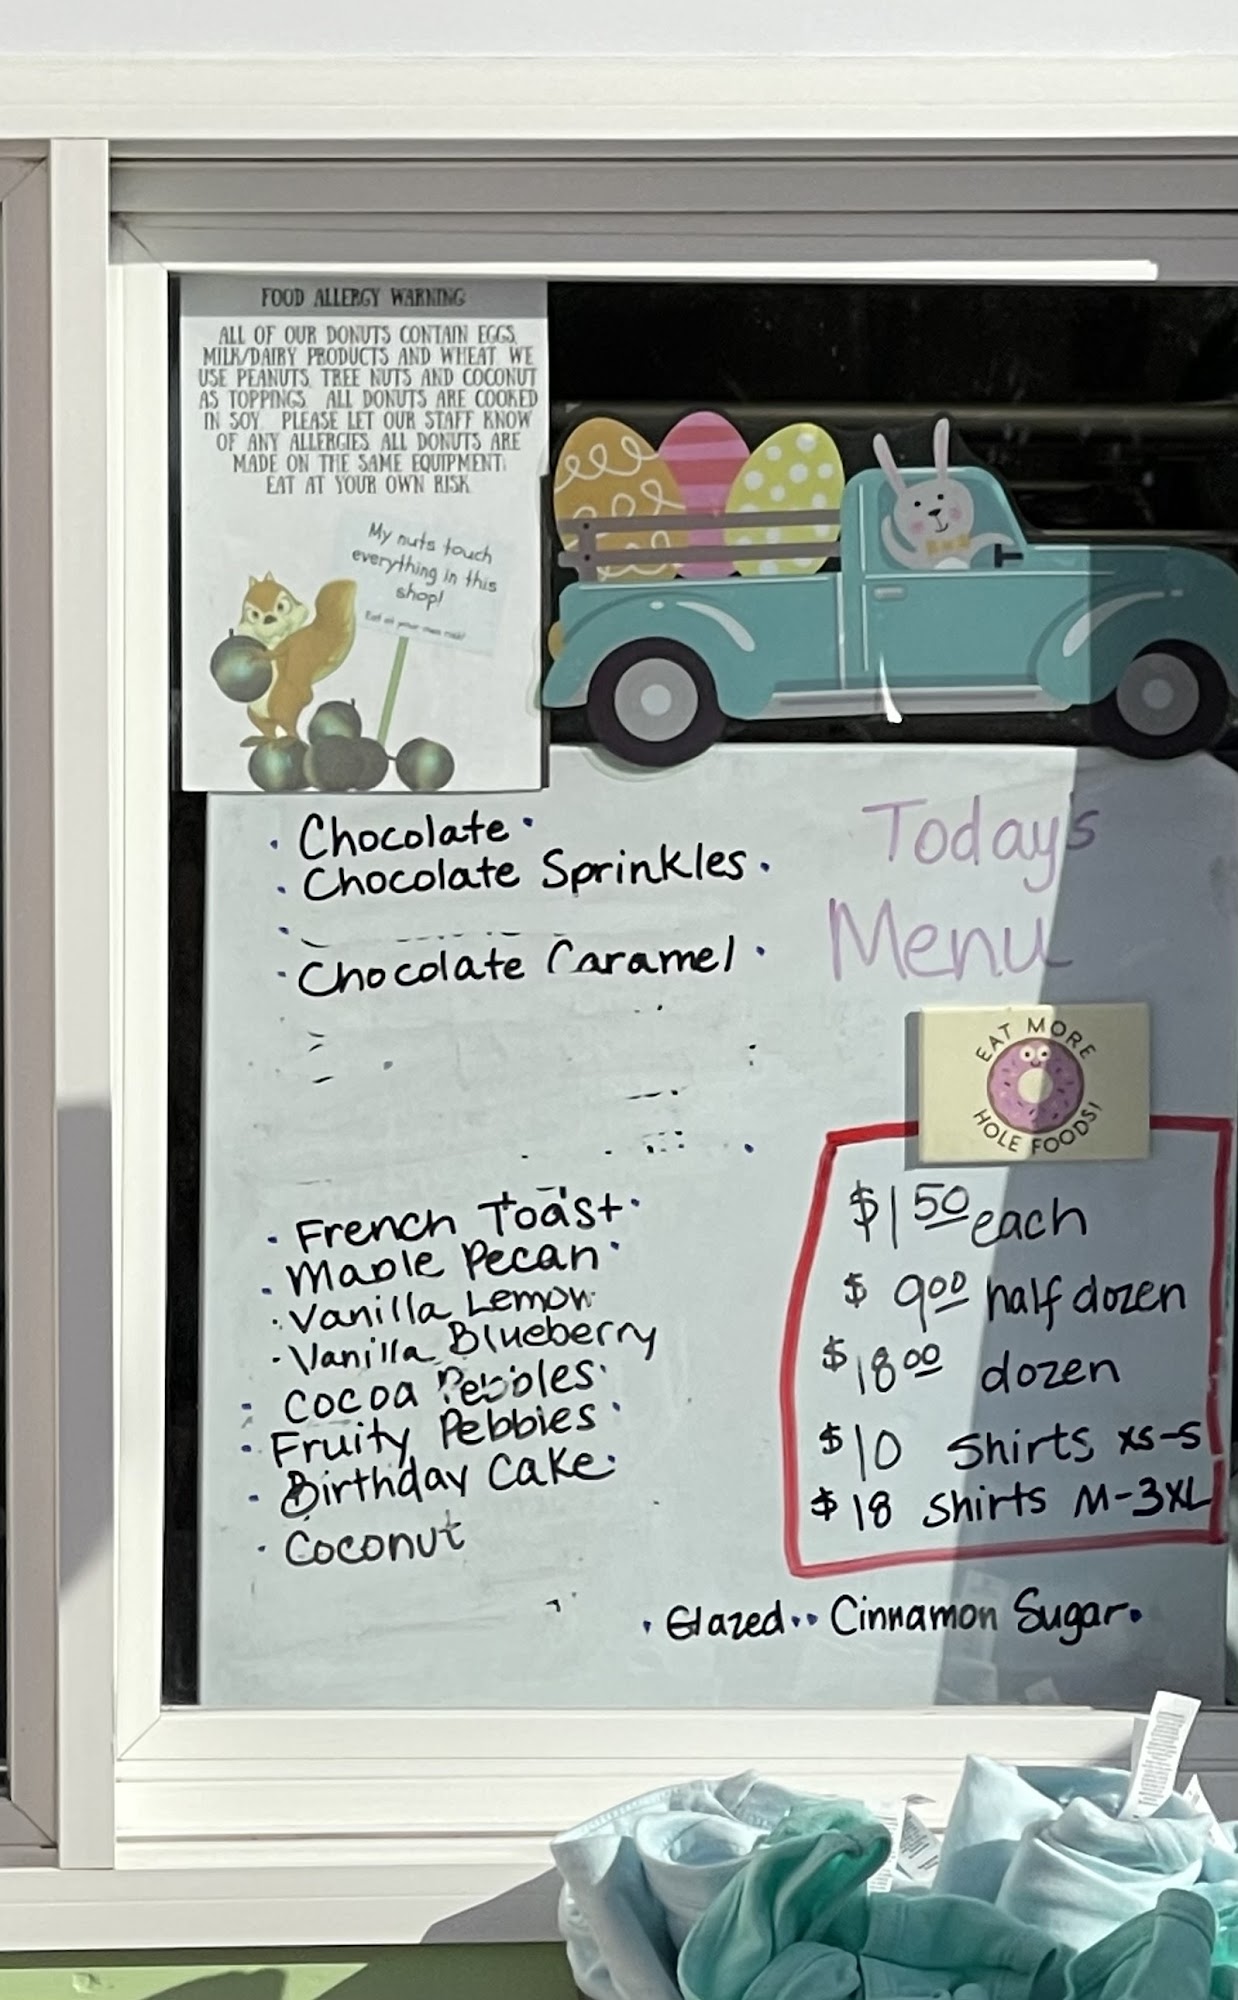 FOOD ALLERGY WARNING
ALL OF OUR DONUTS CONTAIN EGGS,
MILK/DAIRY PRODUCTS AND WHEAT. WE
USE PEANUTS, TREE NUTS AND COCONUT
AS TOPPINGS. ALL DONUTS ARE COOKED
IN SOY. PLEASE LET OUR STAFF KNOW
OF ANY ALLERGIES. ALL DONUTS ARE
MADE ON THE SAME EQUIPMENT.
EAT AT YOUR OWN RISK
My nuts touch
everything in this
shop!
Eat at your own risk!
• Chocolate •
• Chocolate Sprinkles •
• Chocolate Caramel •
• French Toast •
• Maple Pecan •
• Vanilla Lemon
• Vanilla Blueberry
• Cocoa Pebbles •
• Fruity Pebbles •
• Birthday Cake •
• Coconut
Todays
Menu
EAT MORE
HOLE FOODS!
$1.50 each
$ 9.00 half dozen
$18.00 dozen
$10 Shirts XS-S
$18 Shirts M-3XL
• Glazed • • Cinnamon Sugar •